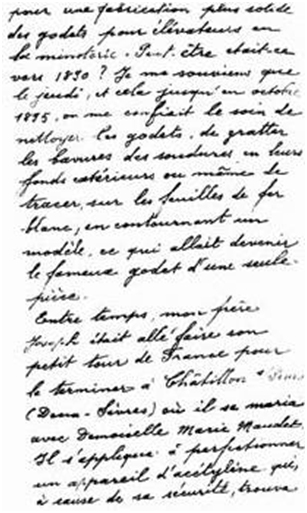 pour une fabrication plus solide
des godets pour élévateurs en
la minoterie. Peut-être était-ce
vers 1890 ? Je me souviens que
le jeudi, et cela jusqu'en octobre
1895, on me confiait le soin de
nettoyer les godets, de gratter
les bavures des soudures en leurs
fonds extérieurs ou même de
tracer, sur les feuilles de fer
blanc, en contournant un
modèle, ce qui allait devenir
le fameux godet d'une seule-
pièce.
Entre temps, mon frère
Joseph était allé faire son
petit tour de France pour
le terminer à Châtillon s/
(Deux-Sèvres) où il se maria
avec Demoiselle Marie Maudet.
Il s'appliqua à perfectionner
un appareil d'acétylène qui,
à cause de sa sécurité, trouva